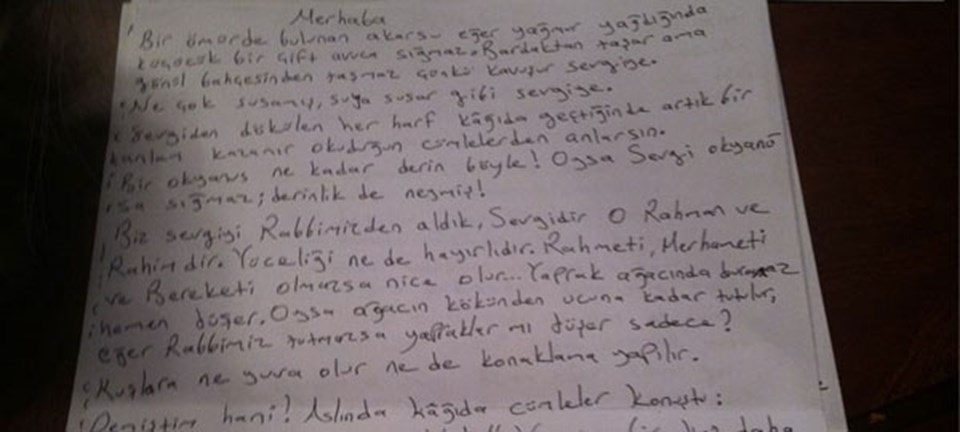 Merhaba
Bir ömürde bulunan akarsu eğer yağmur yağdığında
koşacak bir çift avuca sığmaz. Bardaktan taşar ama
gönül bahçesinden taşmaz çünkü kavuşur sevgiye.
Ne çok susamış, suya susar gibi sevgiye.
Sevgiden dökülen her harf kâğıda geçtiğinde artık bir
anlam kazanır okuduğun cümlelerden anlarsın.
Bir okyanus ne kadar derin böyle! Oysa Sevgi okyanu
sa sığmaz; derinlik de neymiş!
Biz sevgiyi Rabbimizden aldık, Sevgidir O Rahman ve
Rahimdir. Yüceliği ne de hayırlıdır. Rahmeti, Merhameti
ve Bereketi olmazsa nice olur... Yaprak ağacında durmaz
hemen düşer. Oysa ağacın kökünden ucuna kadar tutulur,
eğer Rabbimiz tutmazsa yapraklar mı düşer sadece?
Kuşlara ne yuva olur ne de konaklama yapılır.
Demiştim hani! Aslında kâğıda cümleler konuştu:
daha